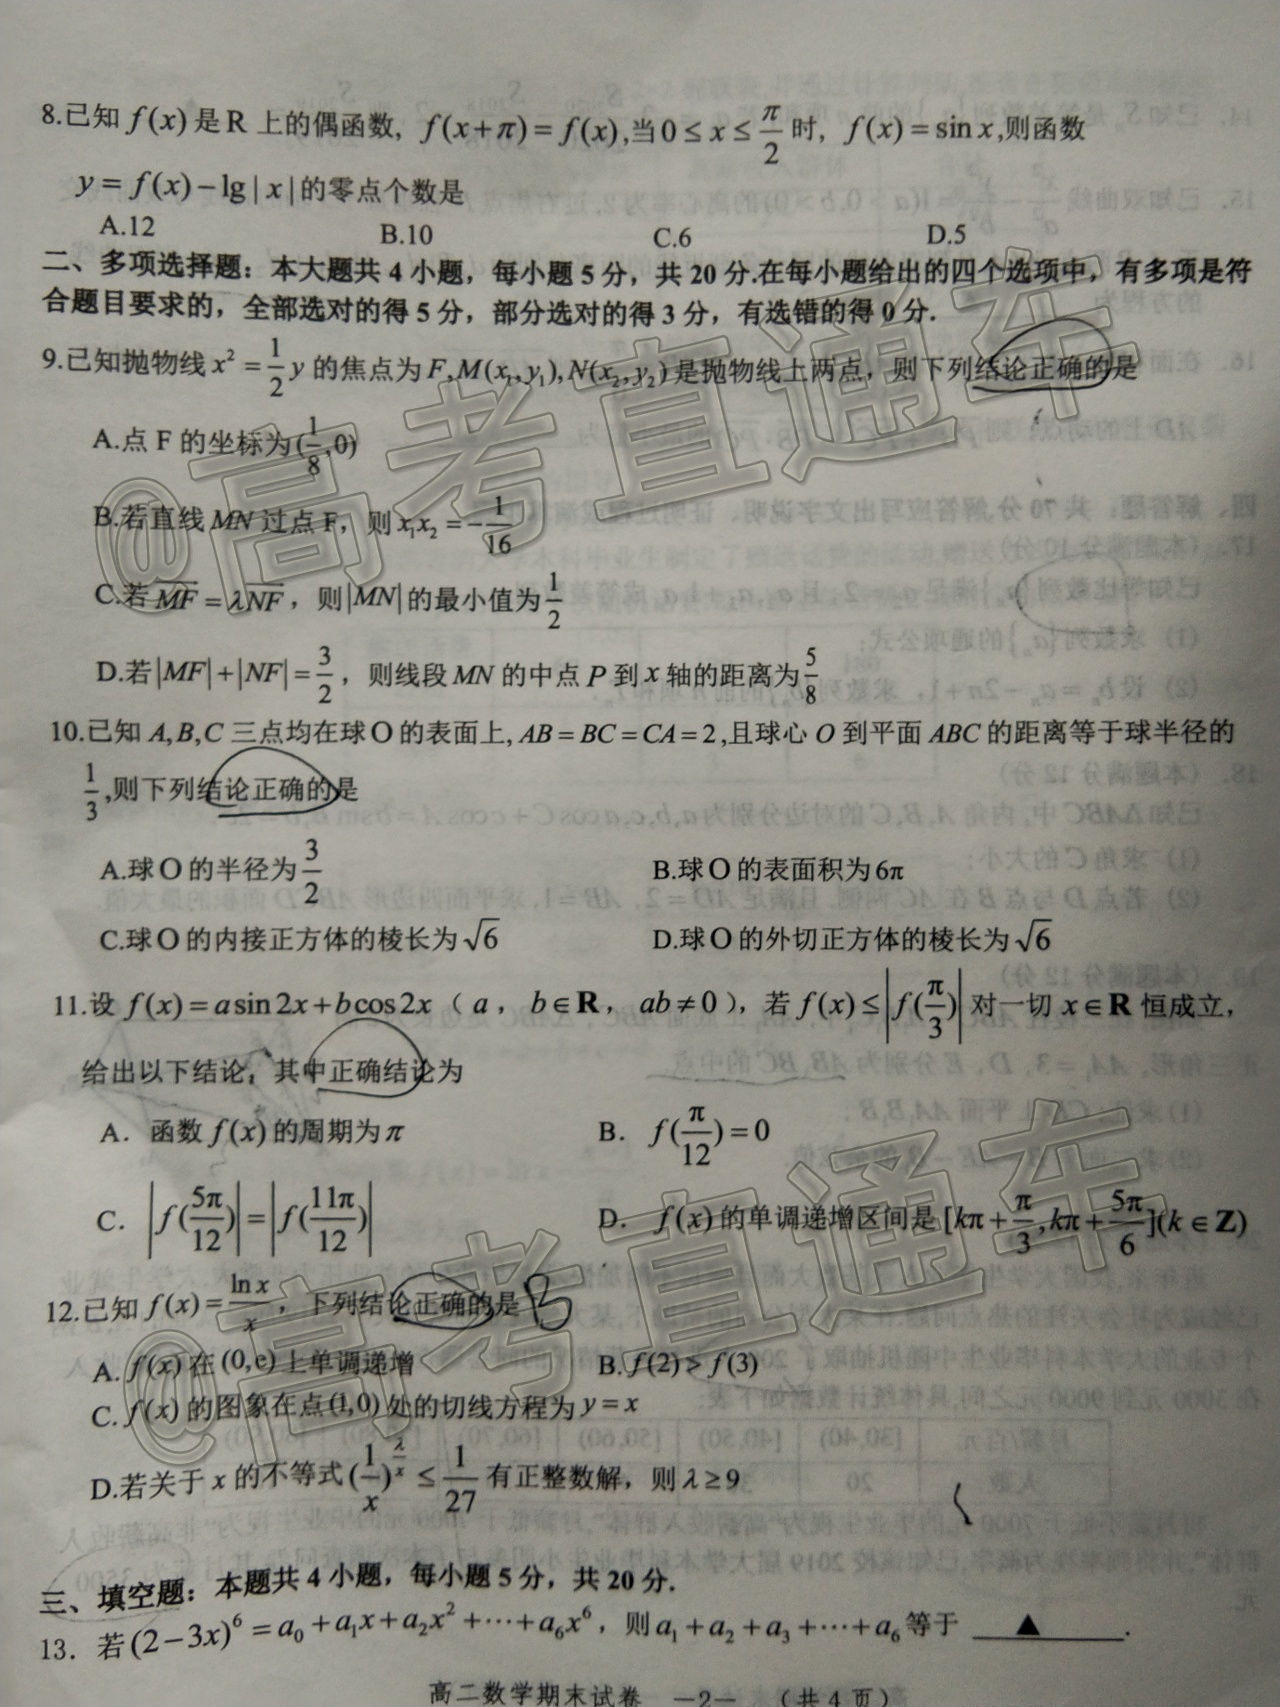 8.已知 f(x) 是 R 上的偶函数, f(x+π)=f(x),当 0≤x≤π/2 时, f(x)=sin x,则函数
y=f(x)-lg|x| 的零点个数是
A.12 B.10 C.6 D.5
二、多项选择题：本大题共 4 小题，每小题 5 分，共 20 分.在每小题给出的四个选项中，有多项是符
合题目要求的，全部选对的得 5 分，部分选对的得 3 分，有选错的得 0 分.
9.已知抛物线 x²=1/2 y 的焦点为 F,M(x₁,y₁),N(x₂,y₂) 是抛物线上两点，则下列结论正确的是
A.点 F 的坐标为(1/8,0)
B.若直线 MN 过点 F，则 x₁x₂=-1/16
C.若 MF=λNF，则|MN|的最小值为 1/2
D.若|MF|+|NF|=3/2，则线段 MN 的中点 P 到 x 轴的距离为 5/8
10.已知 A,B,C 三点均在球 O 的表面上, AB=BC=CA=2,且球心 O 到平面 ABC 的距离等于球半径的
1/3,则下列结论正确的是
A.球 O 的半径为 3/2 B.球 O 的表面积为 6π
C.球 O 的内接正方体的棱长为 √6 D.球 O 的外切正方体的棱长为 √6
11.设 f(x)=a sin 2x+b cos 2x（a，b∈R，ab≠0），若 f(x)≤|f(π/3)| 对一切 x∈R 恒成立，
给出以下结论，其中正确结论为
A．函数 f(x) 的周期为 π B．f(π/12)=0
C．|f(5π/12)|=|f(11π/12)| D．f(x) 的单调递增区间是 [kπ+π/3,kπ+5π/6](k∈Z)
12.已知 f(x)=ln x/x，下列结论正确的是 B
A.f(x) 在 (0,e) 上单调递增 B.f(2)>f(3)
C.f(x) 的图象在点(1,0) 处的切线方程为 y=x
D.若关于 x 的不等式 (1/x)^(λ/x)≤1/27 有正整数解，则 λ≥9
三、填空题：本题共 4 小题，每小题 5 分，共 20 分.
13．若 (2-3x)⁶=a₀+a₁x+a₂x²+⋯+a₆x⁶，则 a₁+a₂+a₃+⋯+a₆ 等于 ▲ .
高二数学期末试卷 —2— （共 4 页）
@高考直通车
@高考直通车